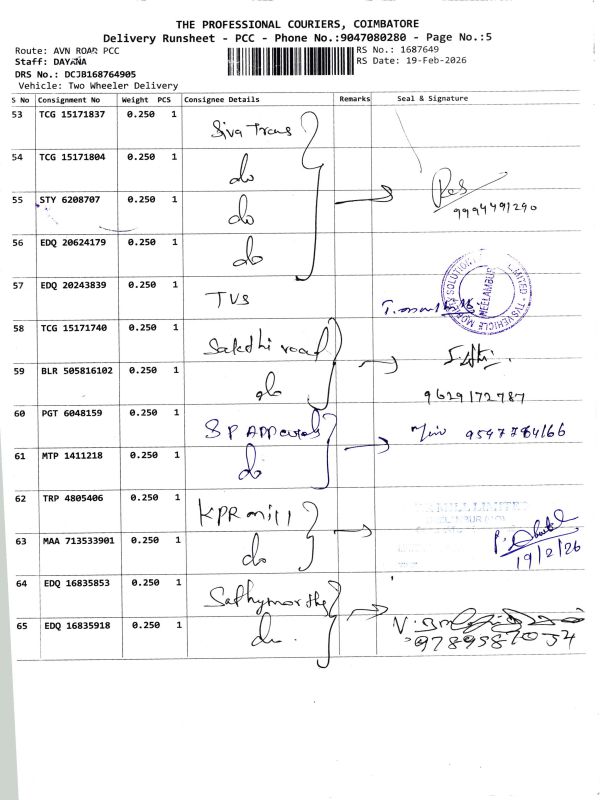 THE PROFESSIONAL COURIERS, COIMBATORE
Delivery Runsheet - PCC - Phone No.:9047080280 - Page No.:5
Route: AVN ROAD PCC
RS No.: 1687649
Staff: DAYANA
RS Date: 19-Feb-2026
DRS No.: DCJB168764905
Vehicle: Two Wheeler Delivery
S No Consignment No Weight PCS Consignee Details Remarks Seal & Signature
53 TCG 15171837 0.250 1 Siva Trans
54 TCG 15171804 0.250 1 do
55 STY 6208707 0.250 1 do
9994491290
56 EDQ 20624179 0.250 1 do
57 EDQ 20243839 0.250 1 TVS
58 TCG 15171740 0.250 1 Sakthi road
59 BLR 505816102 0.250 1 do
9629172787
60 PGT 6048159 0.250 1 SP
61 MTP 1411218 0.250 1 do
62 TRP 4805406 0.250 1 KPR mill
63 MAA 713533901 0.250 1 do
19/2/26
64 EDQ 16835853 0.250 1
65 EDQ 16835918 0.250 1 do